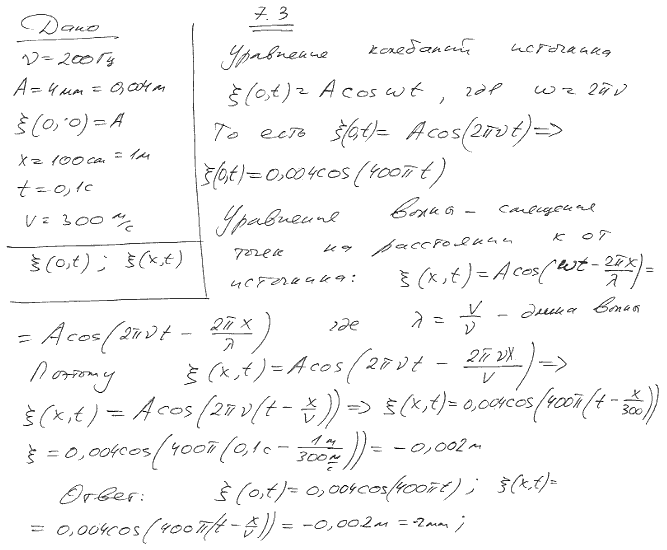 7.3
Дано
ν = 200 Гц
A = 4 мм = 0,004 м
ξ(0,0) = A
x = 100 cm = 1 м
t = 0,1 с
v = 300 м/с
ξ(0,t) ; ξ(x,t)
Уравнение колебаний источника
ξ(0,t) = A cos ωt , где ω = 2πν
То есть ξ(0,t) = A cos(2πνt) =>
ξ(0,t) = 0,004 cos(400πt)
Уравнение волны – смещение
точек на расстоянии x от
источника: ξ(x,t) = A cos(ωt - 2πx/λ) =
= A cos(2πνt - 2πx/λ) где λ = v/ν - длина волны
Поэтому ξ(x,t) = A cos(2πνt - 2πνx/v) =>
ξ(x,t) = A cos(2πν(t - x/v)) => ξ(x,t) = 0,004 cos(400π(t - x/300))
ξ = 0,004 cos(400π(0,1с - 1м/300м/с)) = -0,002 м
Ответ: ξ(0,t) = 0,004 cos(400πt) ; ξ(x,t) =
= 0,004 cos(400π(t - x/v)) = -0,002 м = -2мм ;